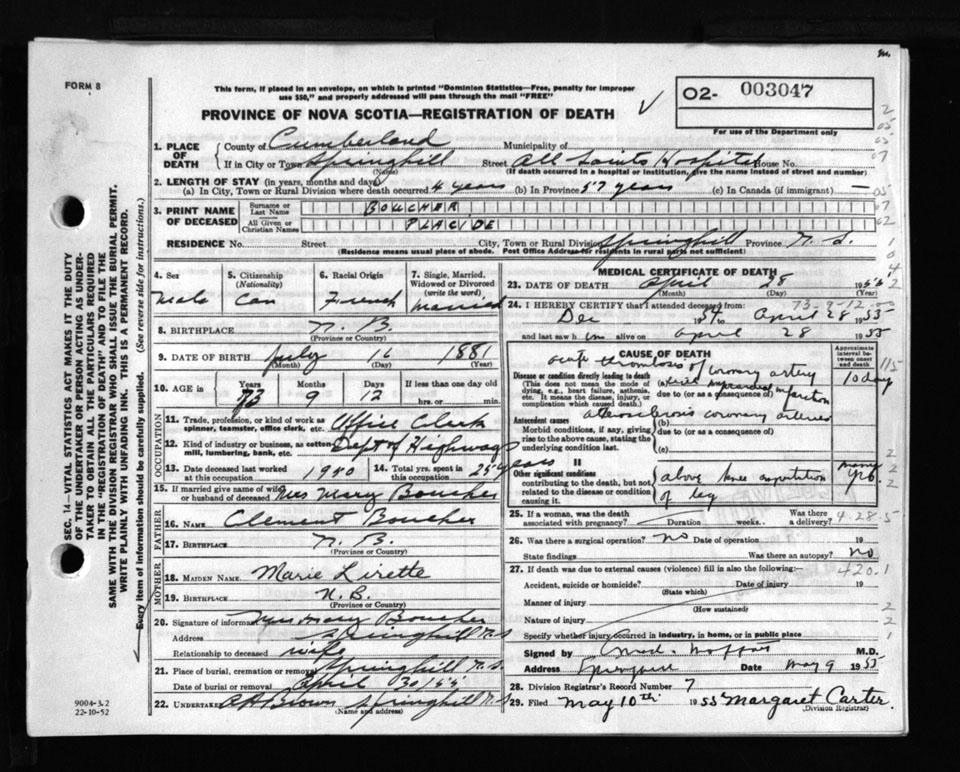 FORM 8
This form, if placed in an envelope, on which is printed "Dominion Statistics—Free, penalty for improper
use $50," and properly addressed will pass through the mail "FREE"
PROVINCE OF NOVA SCOTIA—REGISTRATION OF DEATH
02- 003047
For use of the Department only
1. PLACE OF DEATH
County of Cumberland Municipality of
If in City or Town Springhill Street All Saints Hospital House No.
(Name) (If death occurred in a hospital or institution, give the name instead of street and number)
2. LENGTH OF STAY (in years, months and days)
(a) In City, Town or Rural Division where death occurred 4 years (b) In Province 57 years (c) In Canada (if immigrant) —
3. PRINT NAME OF DECEASED
Surname or Last Name BOUCHER
All Given or Christian Names PLACIDE
RESIDENCE No. Street City, Town or Rural Division Springhill Province N.S.
(Residence means usual place of abode. Post Office Address for residents in rural parts not sufficient)
4. Sex Male
5. Citizenship (Nationality) Can
6. Racial Origin French
7. Single, Married, Widowed or Divorced (write the word) married
8. BIRTHPLACE N.B.
(Province or Country)
9. DATE OF BIRTH July 16 1881
(Month) (Day) (Year)
10. AGE in Years 73 Months 9 Days 12 If less than one day old
hrs. or min.
OCCUPATION
11. Trade, profession, or kind of work as spinner, teamster, office clerk, etc. Office Clerk
12. Kind of industry or business, as cotton mill, lumbering, bank, etc. Dept of Highways
13. Date deceased last worked at this occupation 1950 14. Total yrs. spent in this occupation 25 years
15. If married give name of wife or husband of deceased Mrs Mary Boucher
FATHER
16. NAME Clement Boucher
17. BIRTHPLACE N.B.
(Province or Country)
MOTHER
18. MAIDEN NAME Marie Lirette
19. BIRTHPLACE N.B.
(Province or Country)
20. Signature of informant Mrs Mary Boucher
Address Springhill N.S.
Relationship to deceased wife
21. Place of burial, cremation or removal Springhill N.S.
Date of burial or removal April 30 1955
22. UNDERTAKER Brown Springhill N.S.
(Name and address)
MEDICAL CERTIFICATE OF DEATH
23. DATE OF DEATH April 28 1955
(Month) (Day) (Year)
73-9-12
24. I HEREBY CERTIFY that I attended deceased from:
Dec 1954 to April 28 1955
and last saw h im alive on April 28 1955
CAUSE OF DEATH
Approximate interval between onset and death
Disease or condition directly leading to death
(This does not mean the mode of dying, e.g., heart failure, asthenia, etc. It means the disease, injury, or complication which caused death.)
thrombosis of coronary artery
(a)
due to (or as a consequence of) infarction
10 days
Antecedent causes
Morbid conditions, if any, giving rise to the above cause, stating the underlying condition last.
coronary arteries
(b)
due to (or as a consequence of)
(c)
II
Other significant conditions
contributing to the death, but not related to the disease or condition causing it.
above knee amputation of leg
many yrs.
25. If a woman, was the death associated with pregnancy? Duration weeks. Was there a delivery?
4-28-5
26. Was there a surgical operation? no Date of operation 19
State findings Was there an autopsy? No
27. If death was due to external causes (violence) fill in also the following:—
420.1
Accident, suicide or homicide? Date of injury 19
(State which)
Manner of injury
(How sustained)
Nature of injury
Specify whether injury occurred in industry, in home, or in public place
Signed by M.D.
Address Date May 9 1955
28. Division Registrar's Record Number 7
29. Filed May 10th 1955 Margaret Carter
(Division Registrar)
SEC. 14—VITAL STATISTICS ACT MAKES IT THE DUTY
OF THE UNDERTAKER OR PERSON ACTING AS UNDER-
TAKER TO OBTAIN ALL THE PARTICULARS REQUIRED
IN THE "REGISTRATION OF DEATH" AND TO FILE THE
SAME WITH THE DIVISION REGISTRAR WHO SHALL ISSUE THE BURIAL PERMIT.
WRITE PLAINLY WITH UNFADING INK. THIS IS A PERMANENT RECORD.
Every item of information should be carefully supplied. (See reverse side for instructions.)
9004-3.2
22-10-52